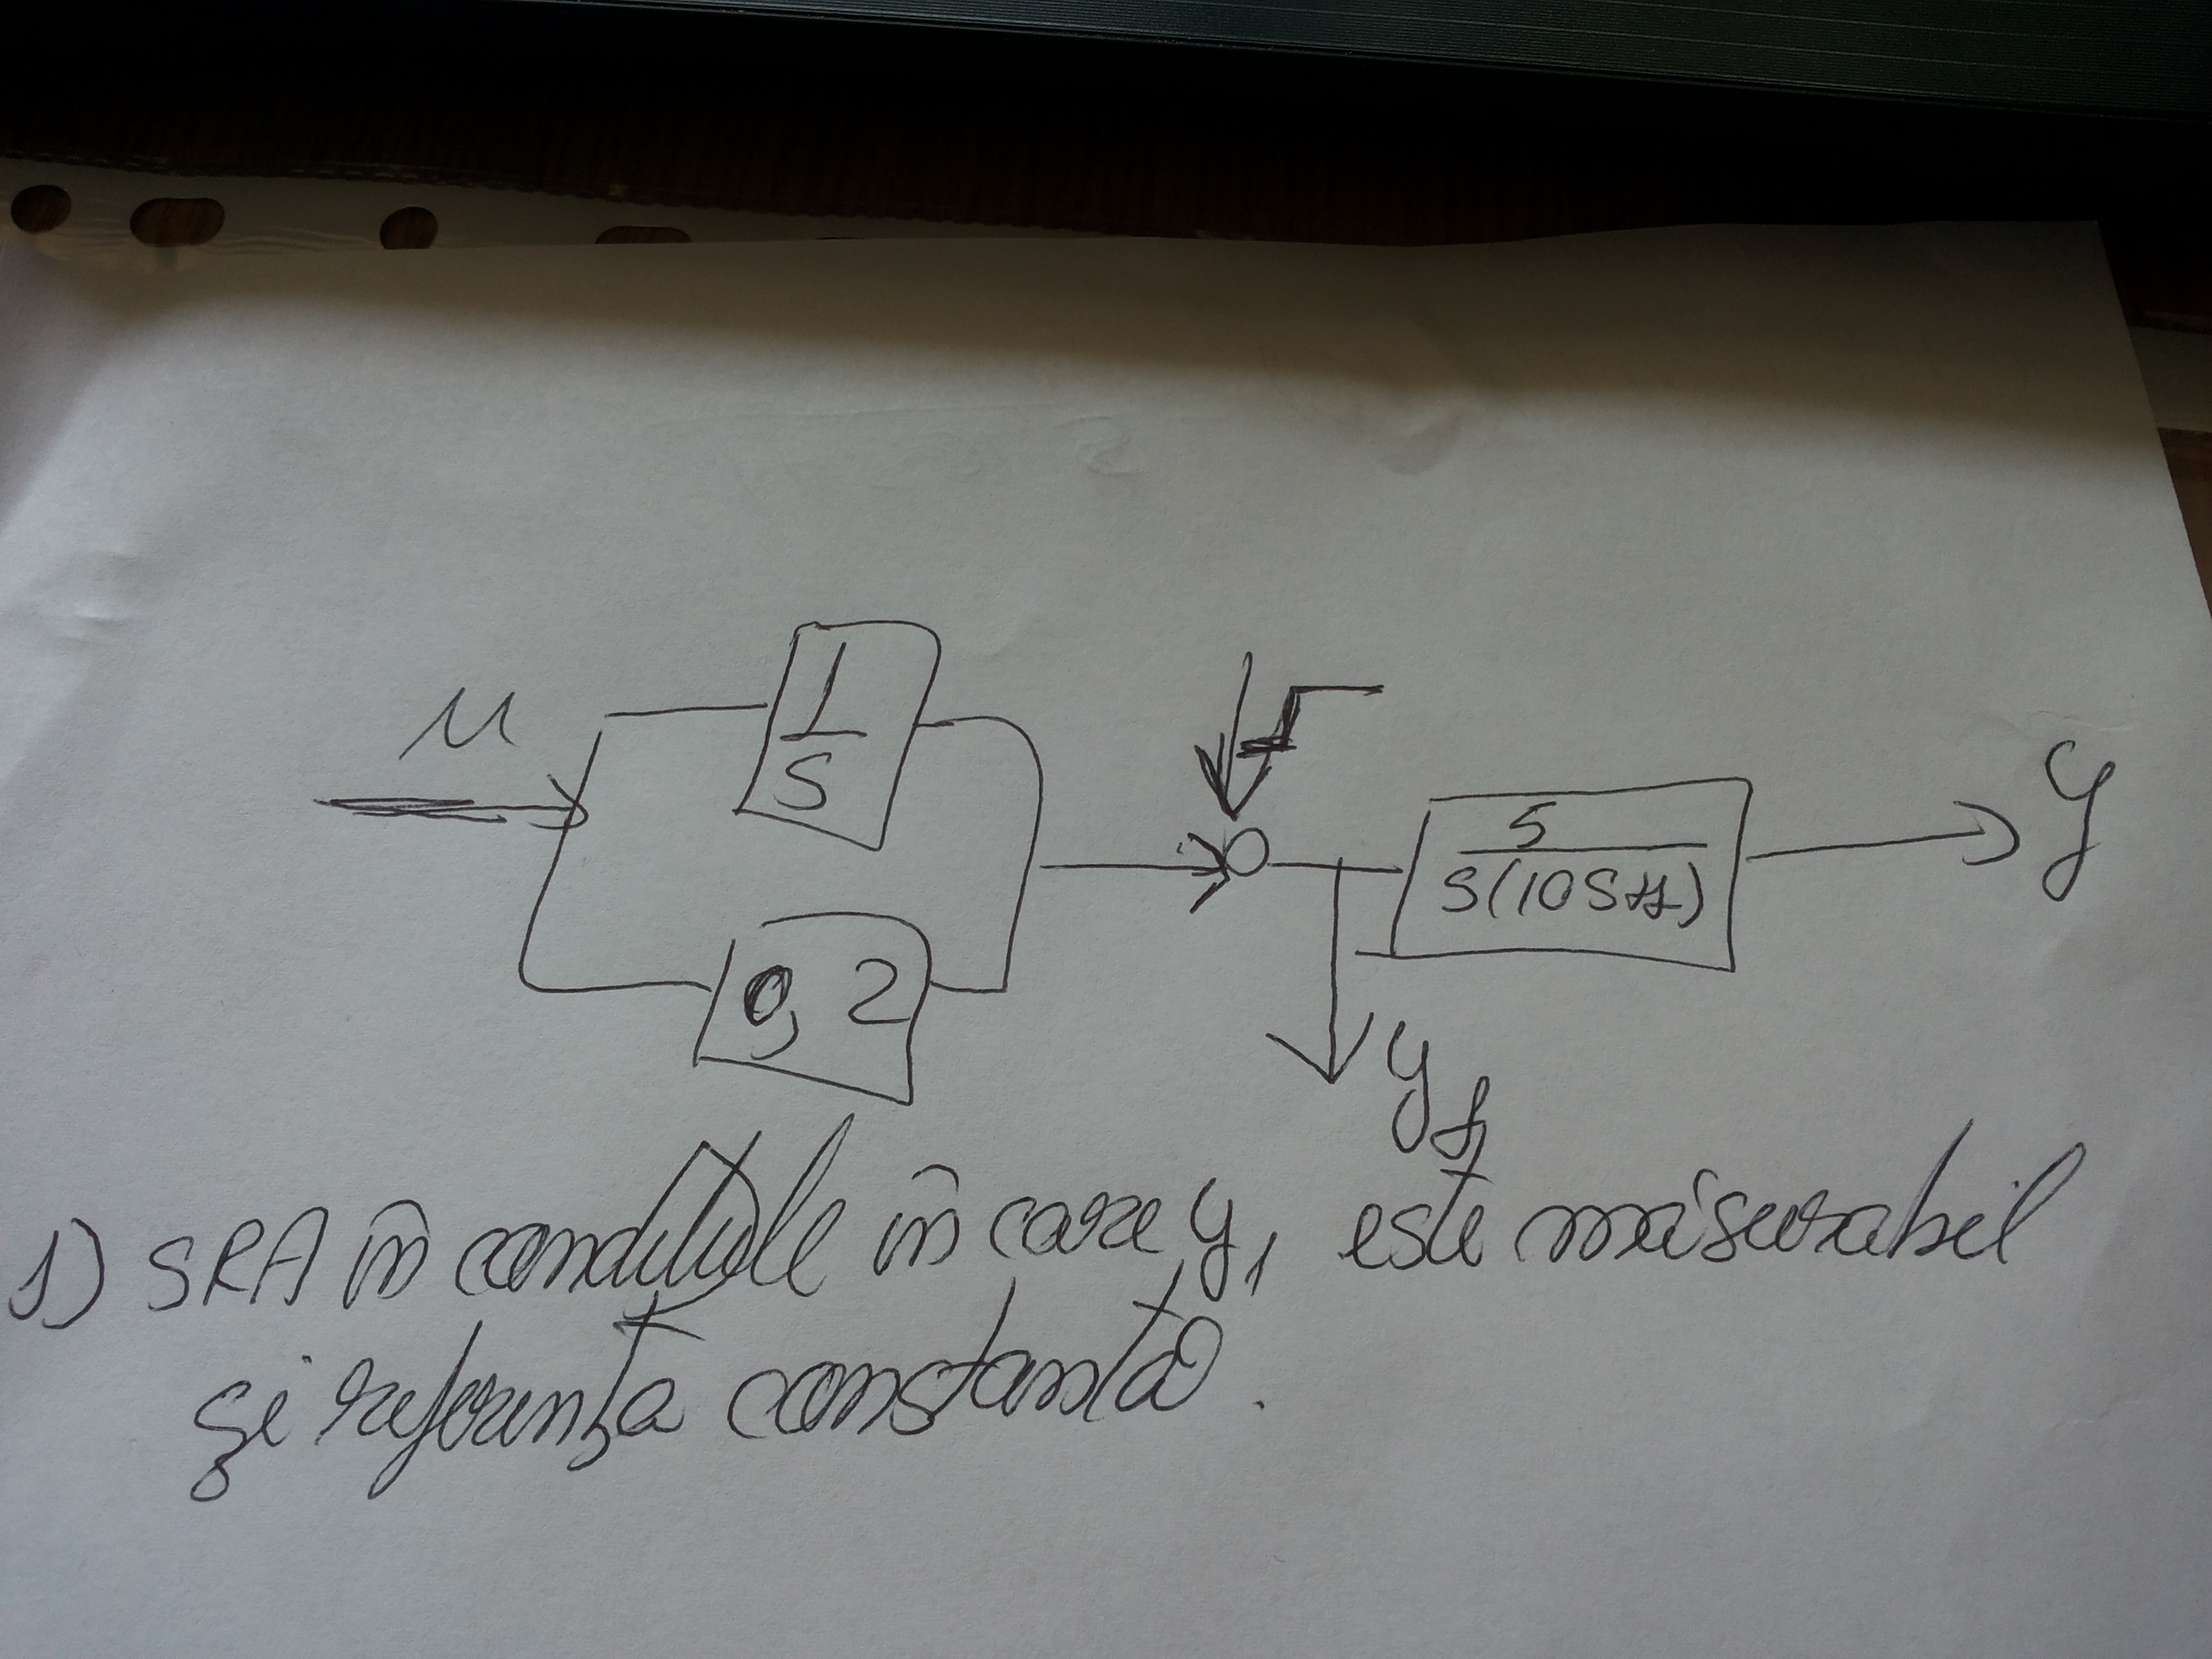 u
1
s
0,2
5
s(10s+1)
y
y1
1) SRA în condițiile în care y1 este măsurabil
și referința constantă.